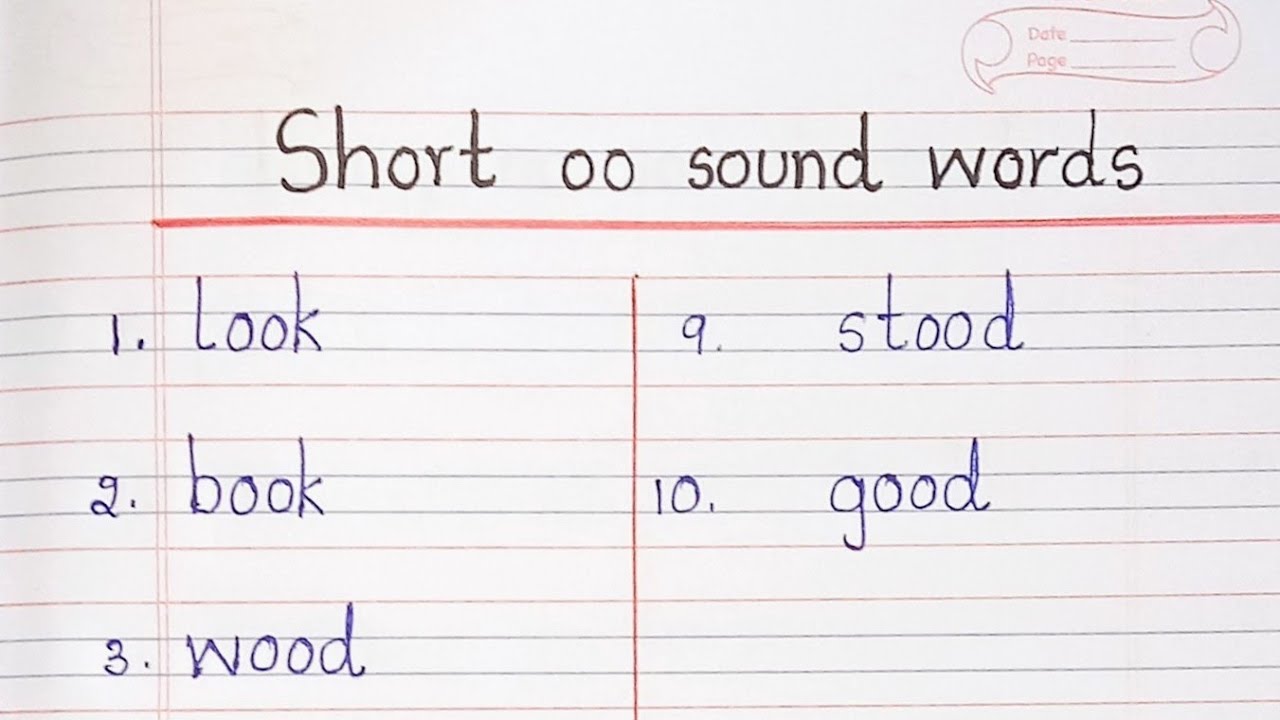 Date
Page
Short oo sound words
1. look
2. book
3. wood
9. stood
10. good